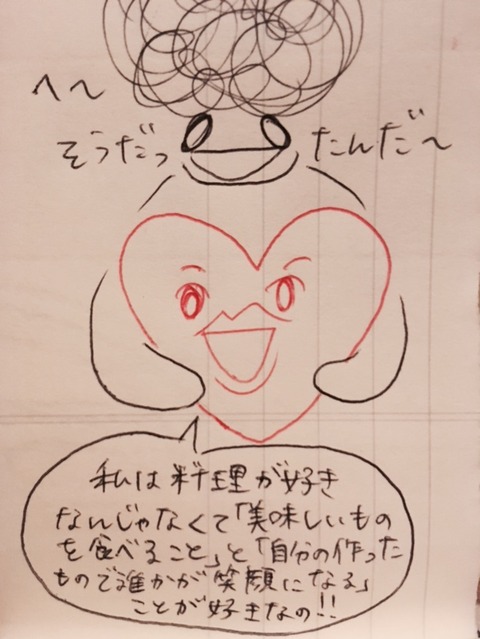 へ〜
そうだっ たんだ〜
私は料理が好き
なんじゃなくて「美味しいもの
を食べること」と「自分の作った
もので誰かが笑顔になる」
ことが好きなの!!